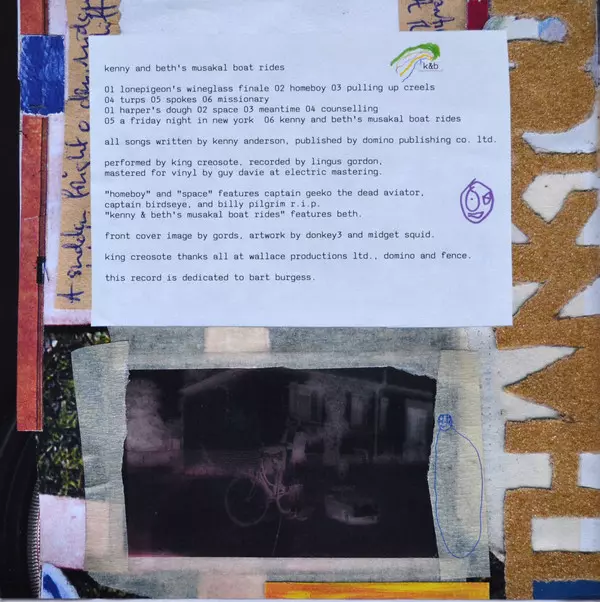 kenny and beth's musakal boat rides
k&b
01 lonepigeon's wineglass finale 02 homeboy 03 pulling up creels
04 turps 05 spokes 06 missionary
01 harper's dough 02 space 03 meantime 04 counselling
05 a friday night in new york  06 kenny and beth's musakal boat rides
all songs written by kenny anderson, published by domino publishing co. ltd.
performed by king creosote, recorded by lingus gordon,
mastered for vinyl by guy davie at electric mastering.
"homeboy" and "space" features captain geeko the dead aviator,
captain birdseye, and billy pilgrim r.i.p.
"kenny & beth's musakal boat rides" features beth.
front cover image by gords, artwork by donkey3 and midget squid.
king creosote thanks all at wallace productions ltd., domino and fence.
this record is dedicated to bart burgess.
A sudden Knight o